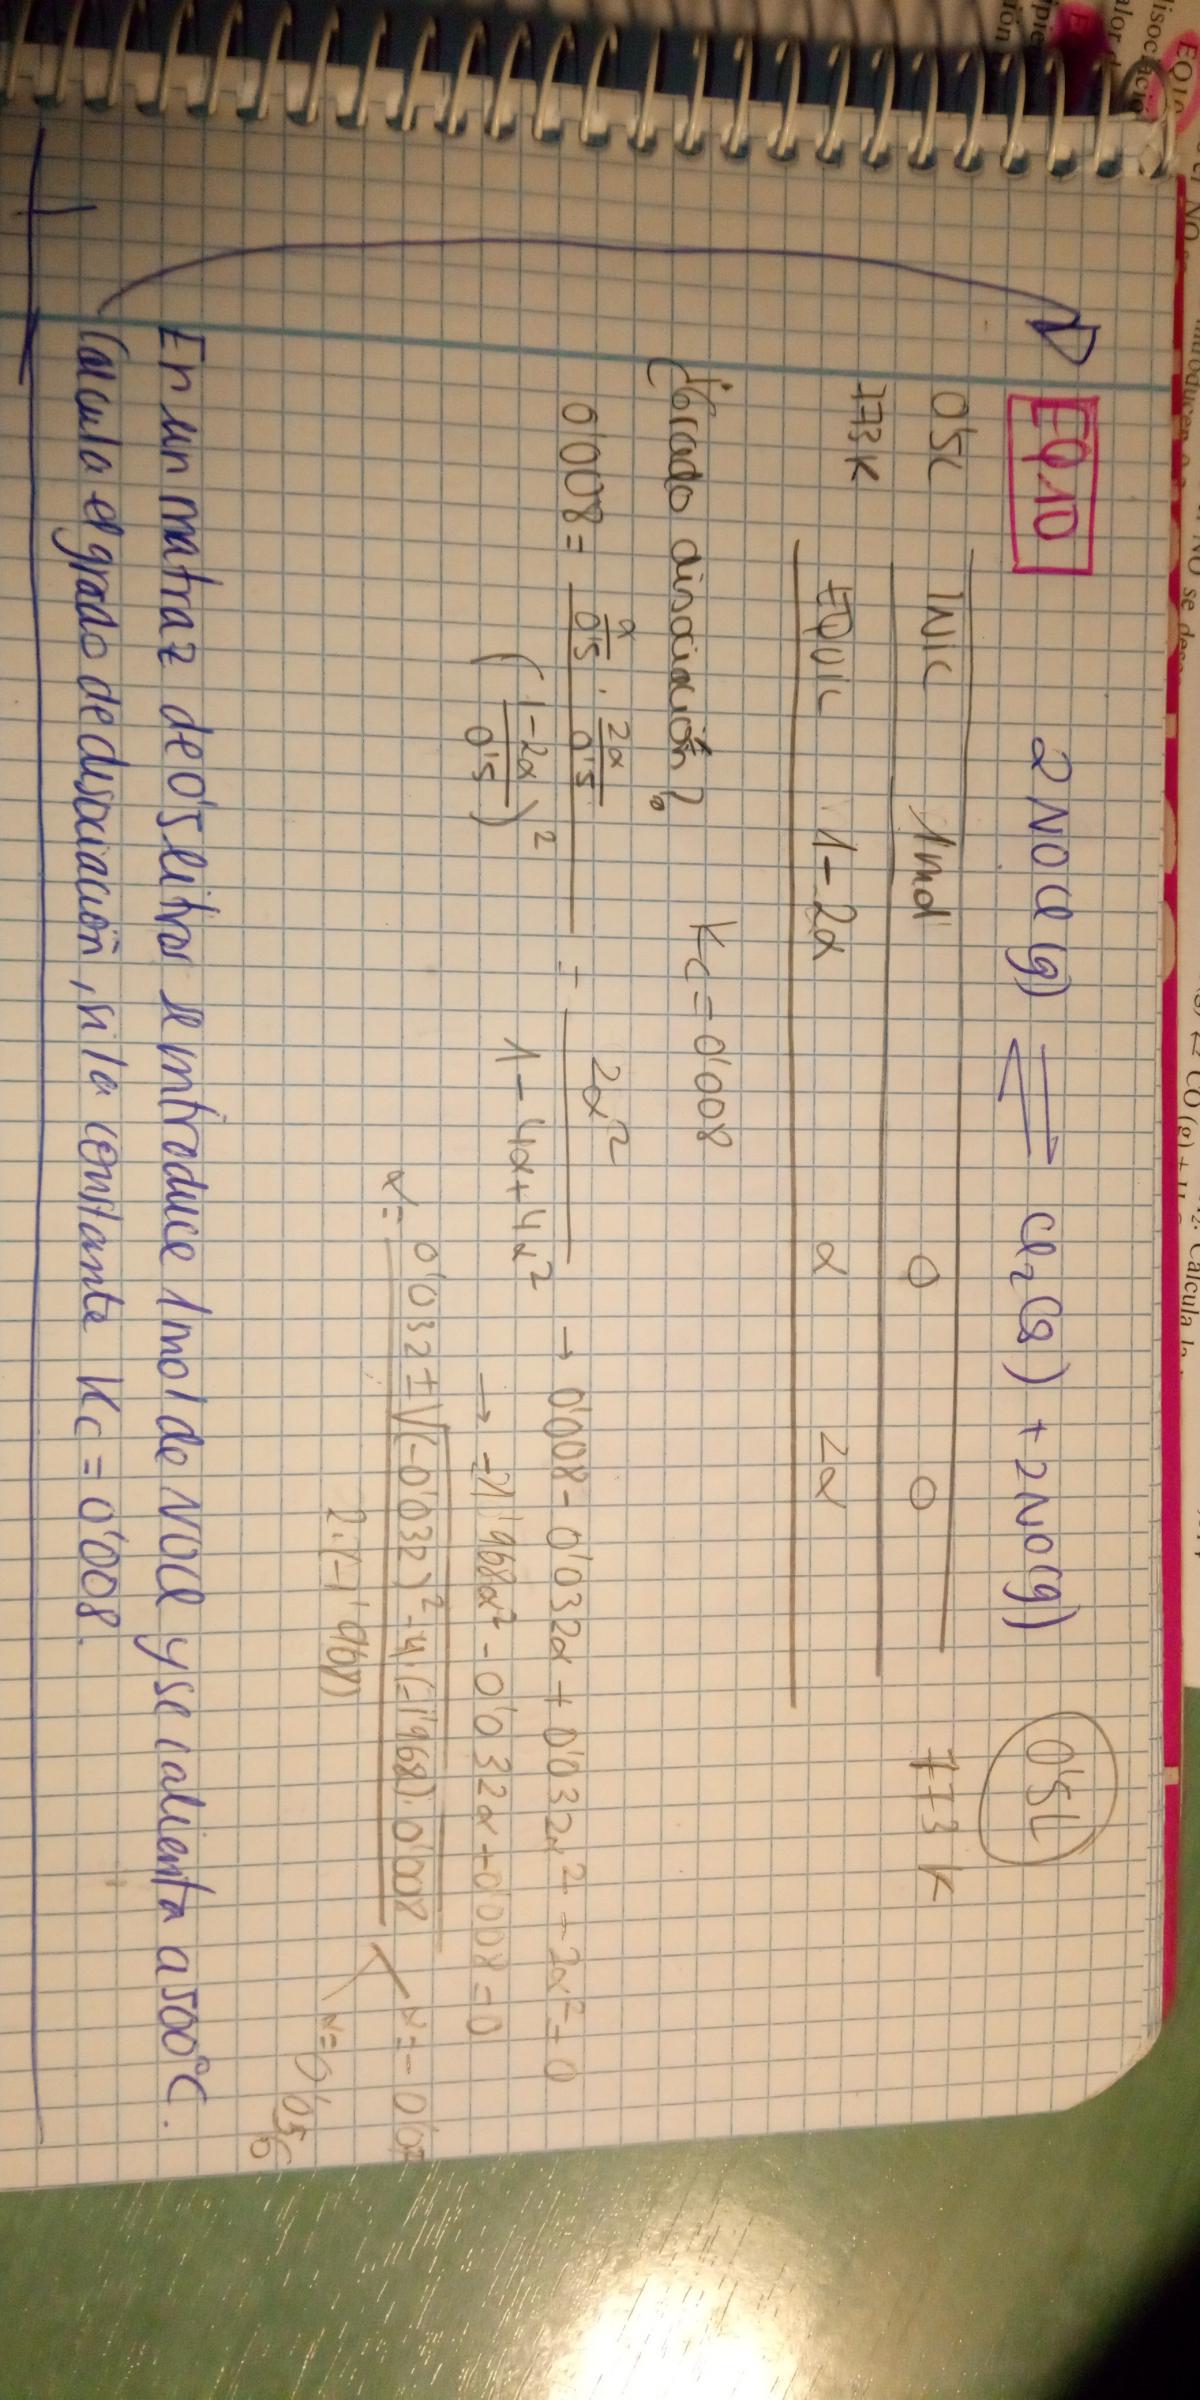 EQ10 2NOCl (g) ⇌ Cl₂(g) + 2NO(g) 0'5L
0'5L INIC 1mol 0 0 773 K
773K EQUIL 1-2α α 2α
¿Grado disociación? Kc=0'008
0'008 = (α/0'5 · 2α/0'5) / ((1-2α)/0'5)² = 2α² / (1-4α+4α²) → 0'008 - 0'032α + 0'032α² - 2α² = 0
→ -1'968α² - 0'032α + 0'008 = 0
α = (0'032 ± √((-0'032)² - 4·(-1'968)·0'008)) / (2·(-1'968))
α=0'056
En un matraz de 0'5 litros se introduce 1mol de NOCl y se calienta a 500°C.
Calcula el grado de disociación, si la constante Kc = 0'008.